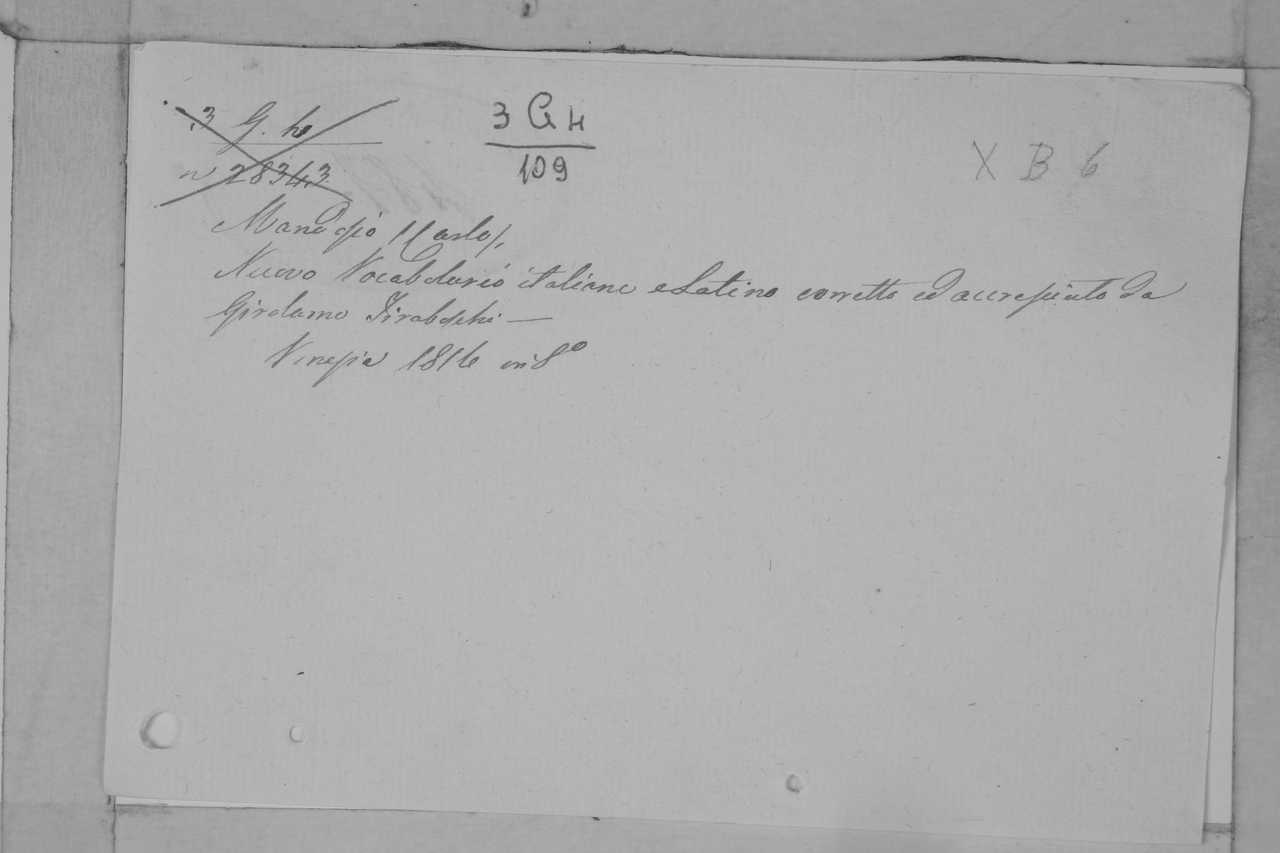 3 G. 4
n 28343
3 G 4
109
X B 6
Mandosio (Carlo),
Nuovo Vocabolario italiano e Latino corretto ed accresciuto da
Girolamo Tiraboschi —
Venezia 1816 in 8º